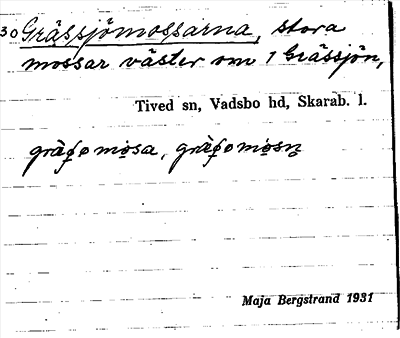 30 Grässjömossarna, stora
mossar väster om 1 Grässjön,
Tived sn, Vadsbo hd, Skarab. l.
Maja Bergstrand 1931